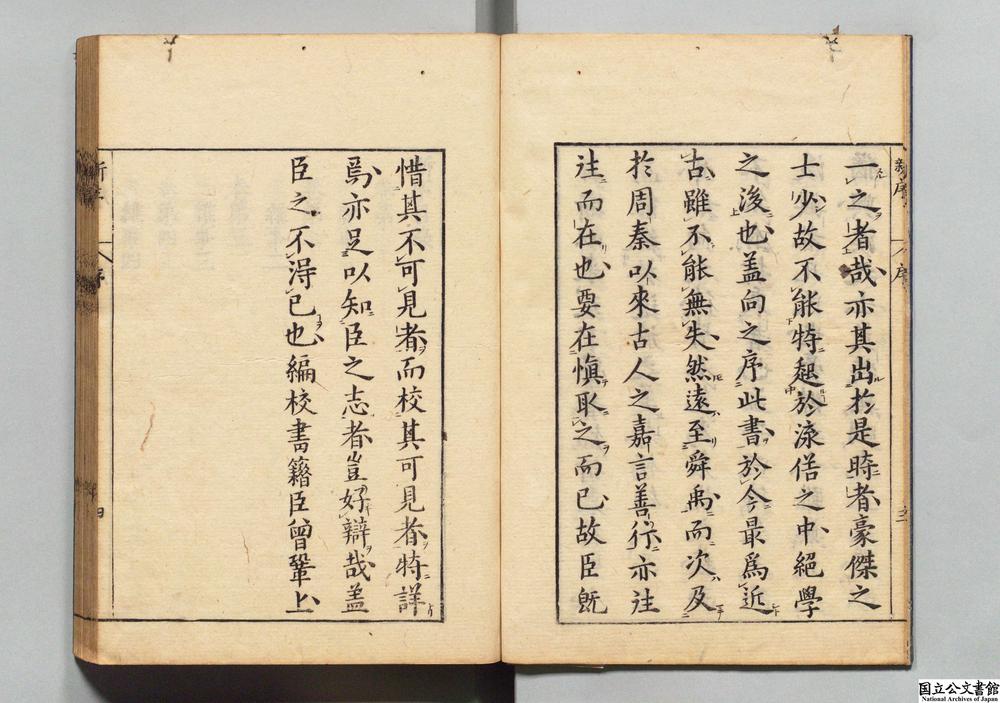 一之者哉亦其出於是時者豪傑之
士少故不能特起於流俗之中絕學
之後也盖向之序此書於今最爲近
古雖不能無失然遠至舜禹而次及
於周秦以來古人之嘉言善行亦往
往而在也要在慎取之而已故臣既
惜其不可見者而校其可見者特詳
焉亦足以知臣之志者豈好辯哉盖
臣之不得已也編校書籍臣曾鞏上
新序 序 三
新序 序 四
国立公文書館
National Archives of Japan